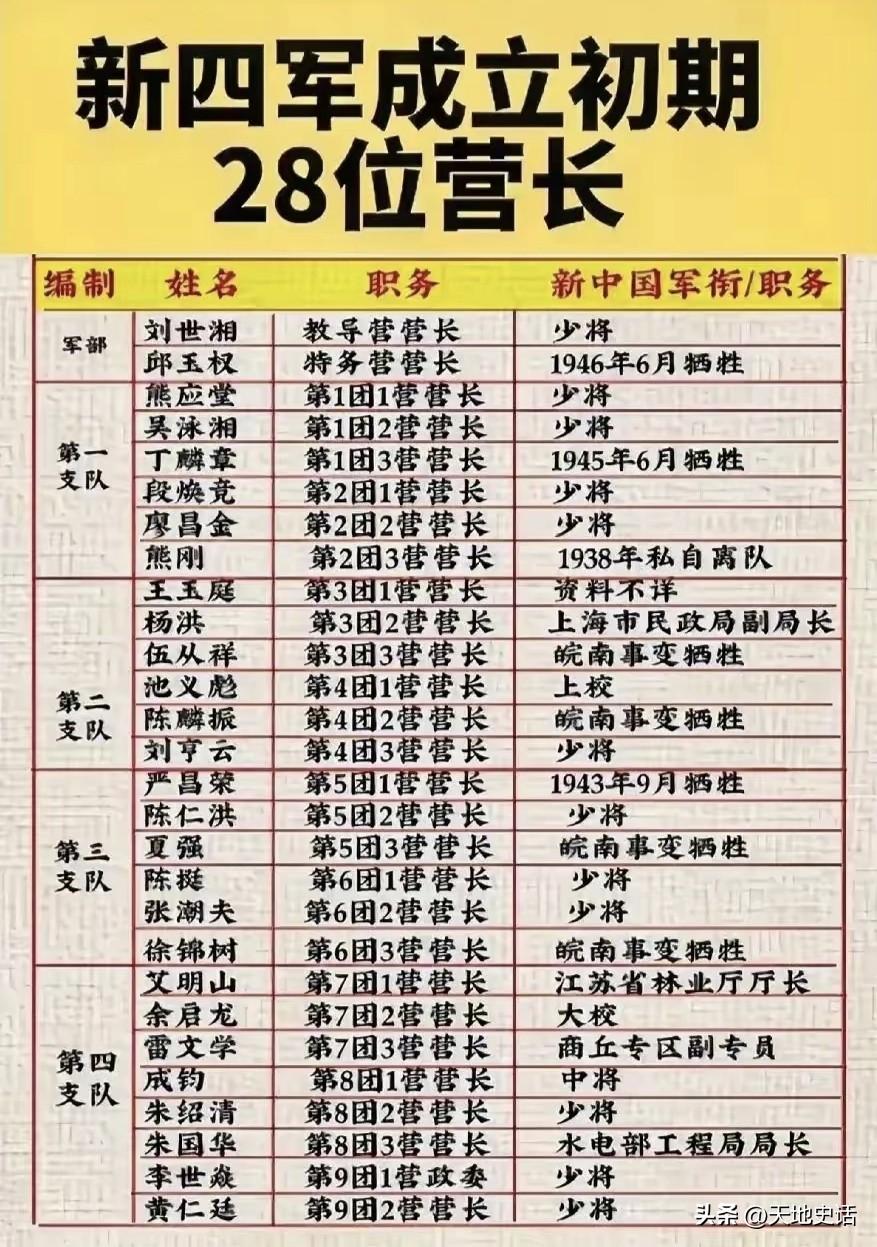 新四军成立初期
28位营长
编制 姓名 职务 新中国军衔/职务
军部
刘世湘 教导营营长 少将
邱玉权 特务营营长 1946年6月牺牲
第一
支队
熊应堂 第1团1营营长 少将
吴泳湘 第1团2营营长 少将
丁麟章 第1团3营营长 1945年6月牺牲
段焕竞 第2团1营营长 少将
廖昌金 第2团2营营长 少将
熊刚 第2团3营营长 1938年私自离队
第二
支队
王玉庭 第3团1营营长 资料不详
杨洪 第3团2营营长 上海市民政局副局长
伍从祥 第3团3营营长 皖南事变牺牲
池义彪 第4团1营营长 上校
陈麟振 第4团2营营长 皖南事变牺牲
刘亨云 第4团3营营长 少将
第三
支队
严昌荣 第5团1营营长 1943年9月牺牲
陈仁洪 第5团2营营长 少将
夏强 第5团3营营长 皖南事变牺牲
陈挺 第6团1营营长 少将
张潮夫 第6团2营营长 少将
徐锦树 第6团3营营长 皖南事变牺牲
第四
支队
艾明山 第7团1营营长 江苏省林业厅厅长
余启龙 第7团2营营长 大校
雷文学 第7团3营营长 商丘专区副专员
成钧 第8团1营营长 中将
朱绍清 第8团2营营长 少将
朱国华 第8团3营营长 水电部工程局局长
李世焱 第9团1营政委 少将
黄仁廷 第9团2营营长 少将
头条 @天地史话